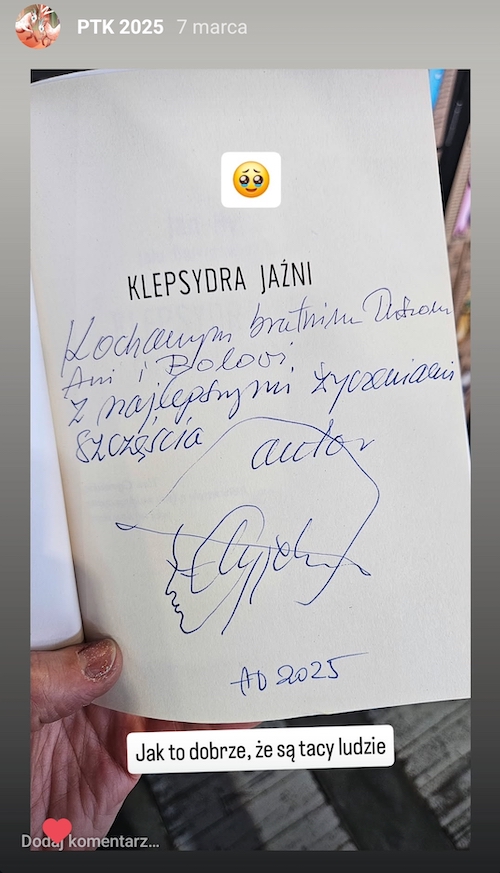 PTK 2025 7 marca
KLEPSYDRA JAŹNI
Kochanym bratnim Duszom
Ani i Bolovi
z najlepszymi życzeniami
szczęścia autor
AD 2025
Jak to dobrze, że są tacy ludzie
Dodaj komentarz...